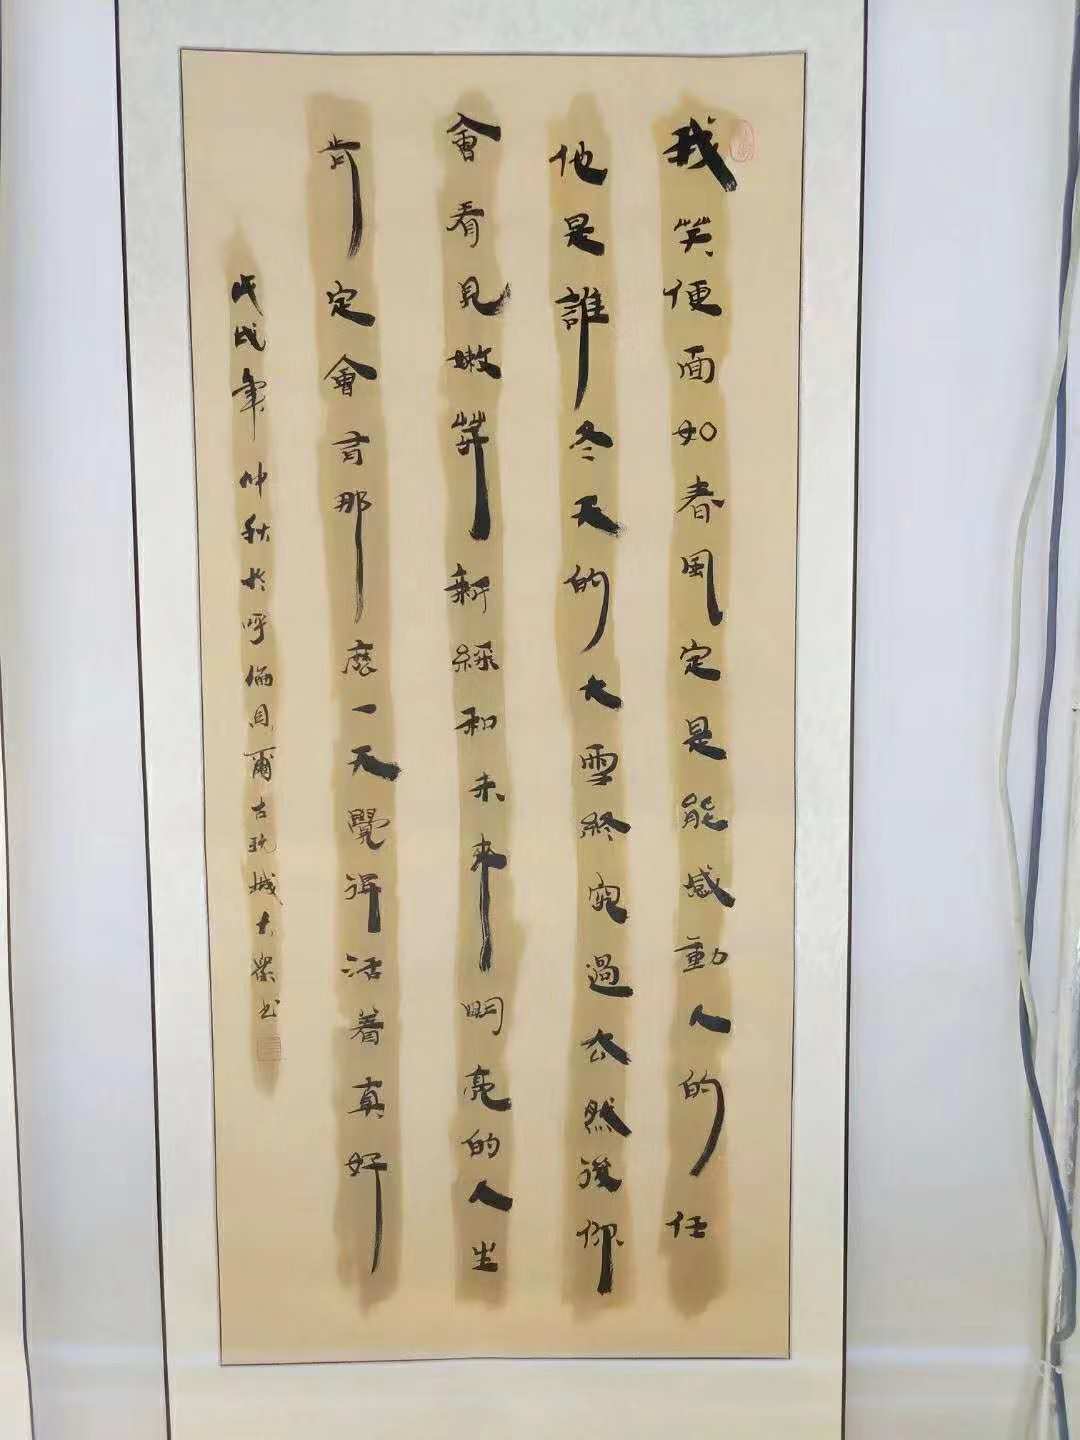 我笑便面如春風定是能感動人的任
他是誰冬天的大雪終究過去然後你
會看見嫩芽新綠和未來明亮的人生
肯定會有那麼一天覺得活着真好
戊戌年仲秋於呼倫貝爾古玩城大眾书